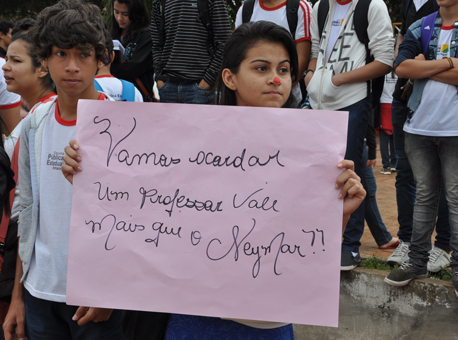 Vamos acordar
Um Professor Vale
mais que o Neymar??